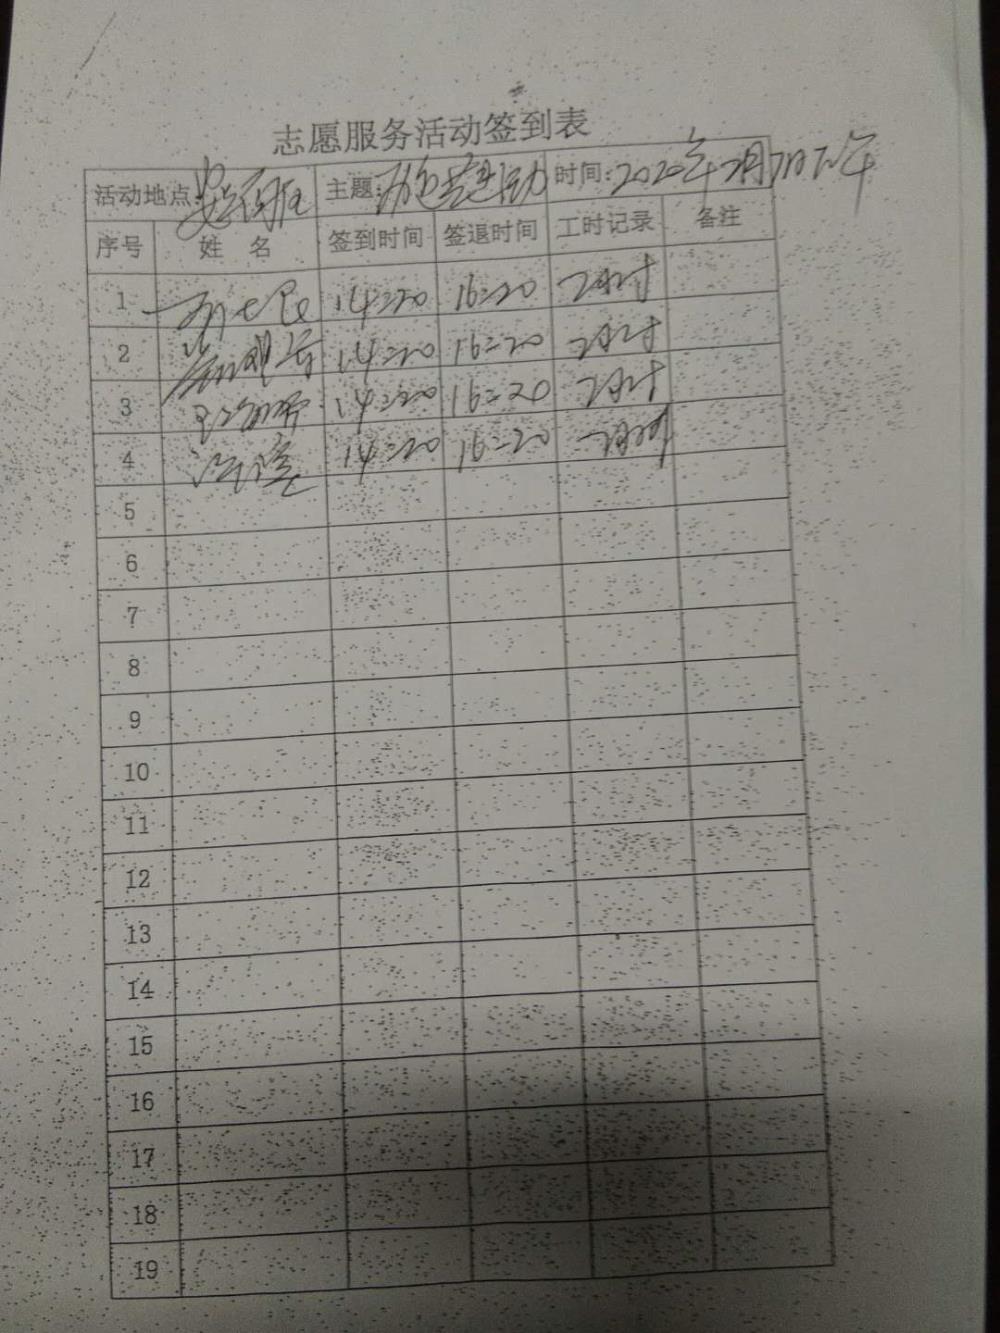 志愿服务活动签到表
活动地点: 主题: 活动 时间:2020年2月7日下午
序号 姓 名 签到时间 签退时间 工时记录 备注
1 14:20 16:20 2小时
2 14:20 16:20 2小时
3 14:20 16:20 2小时
4 14:20 16:20 2小时
5
6
7
8
9
10
11
12
13
14
15
16
17
18
19